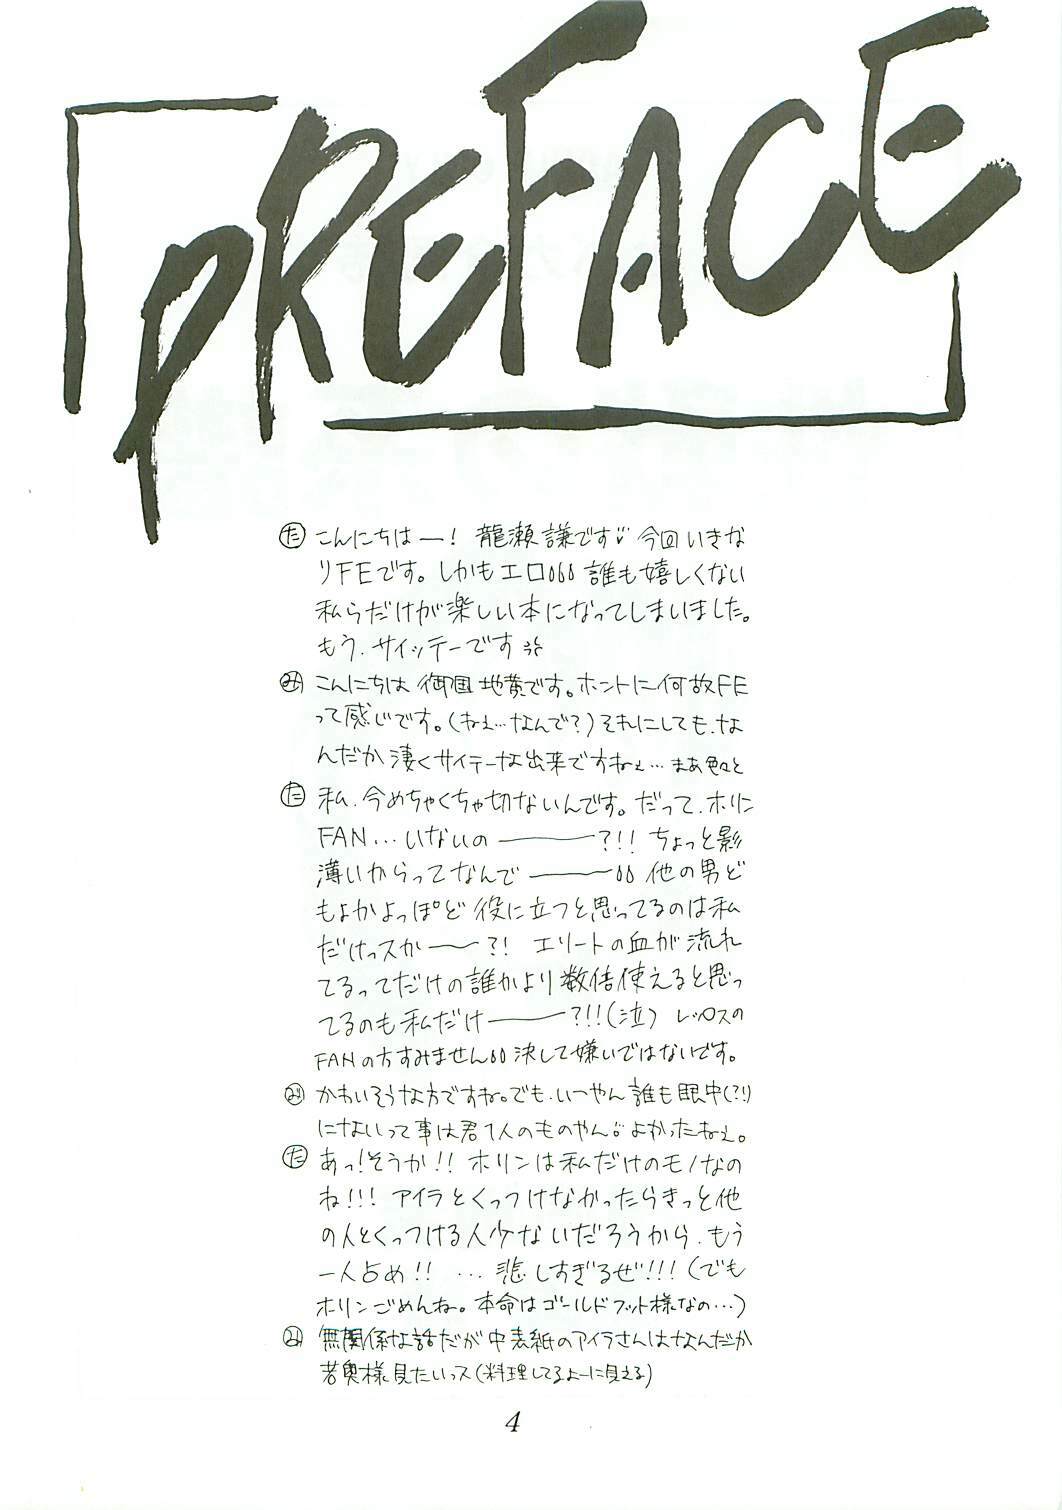 PREFACE
た こんにちはー! 龍瀬 謙です 今回いきな
りFEです。しかもエロ 誰も嬉しくない
私らだけが楽しい本になってしまいました。
もう、サイッテーです
み こんにちは 御国 地黄です。ホントに何故FE
って感じです。(ねぇ…なんで?)それにしても、な
んだか凄くサイテーな出来ですねぇ… まあ色々と
た 私、今めちゃくちゃ切ないんです。だって、ホリン
FAN…いないの―――?!! ちょっと影
薄いからってなんで――― 他の男ど
もよかよっぽど役に立つと思ってるのは私
だけっスか――?! エリートの血が流れ
てるってだけの誰かより数倍使えると思っ
てるのも私だけ―――?!!(泣) レックスの
FANの方すみません 決して嫌いではないです。
み かわいそうな方ですね。でも、いつやん 誰も眼中(?!)
にないって事は君1人のものやん よかったねぇ。
た あっ!そうか!! ホリンは私だけのモノなの
ね!!! アイラとくっつけなかったらきっと他
の人とくっつける人少ないだろうから、もう
一人占め!! …悲しすぎるぜ!!!(でも
ホリンごめんね。本命はゴールドフット様なの…)
み 無関係な話だが中表紙のアイラさんはなんだか
若奥様見たいっス(料理してるよーに見える)
4